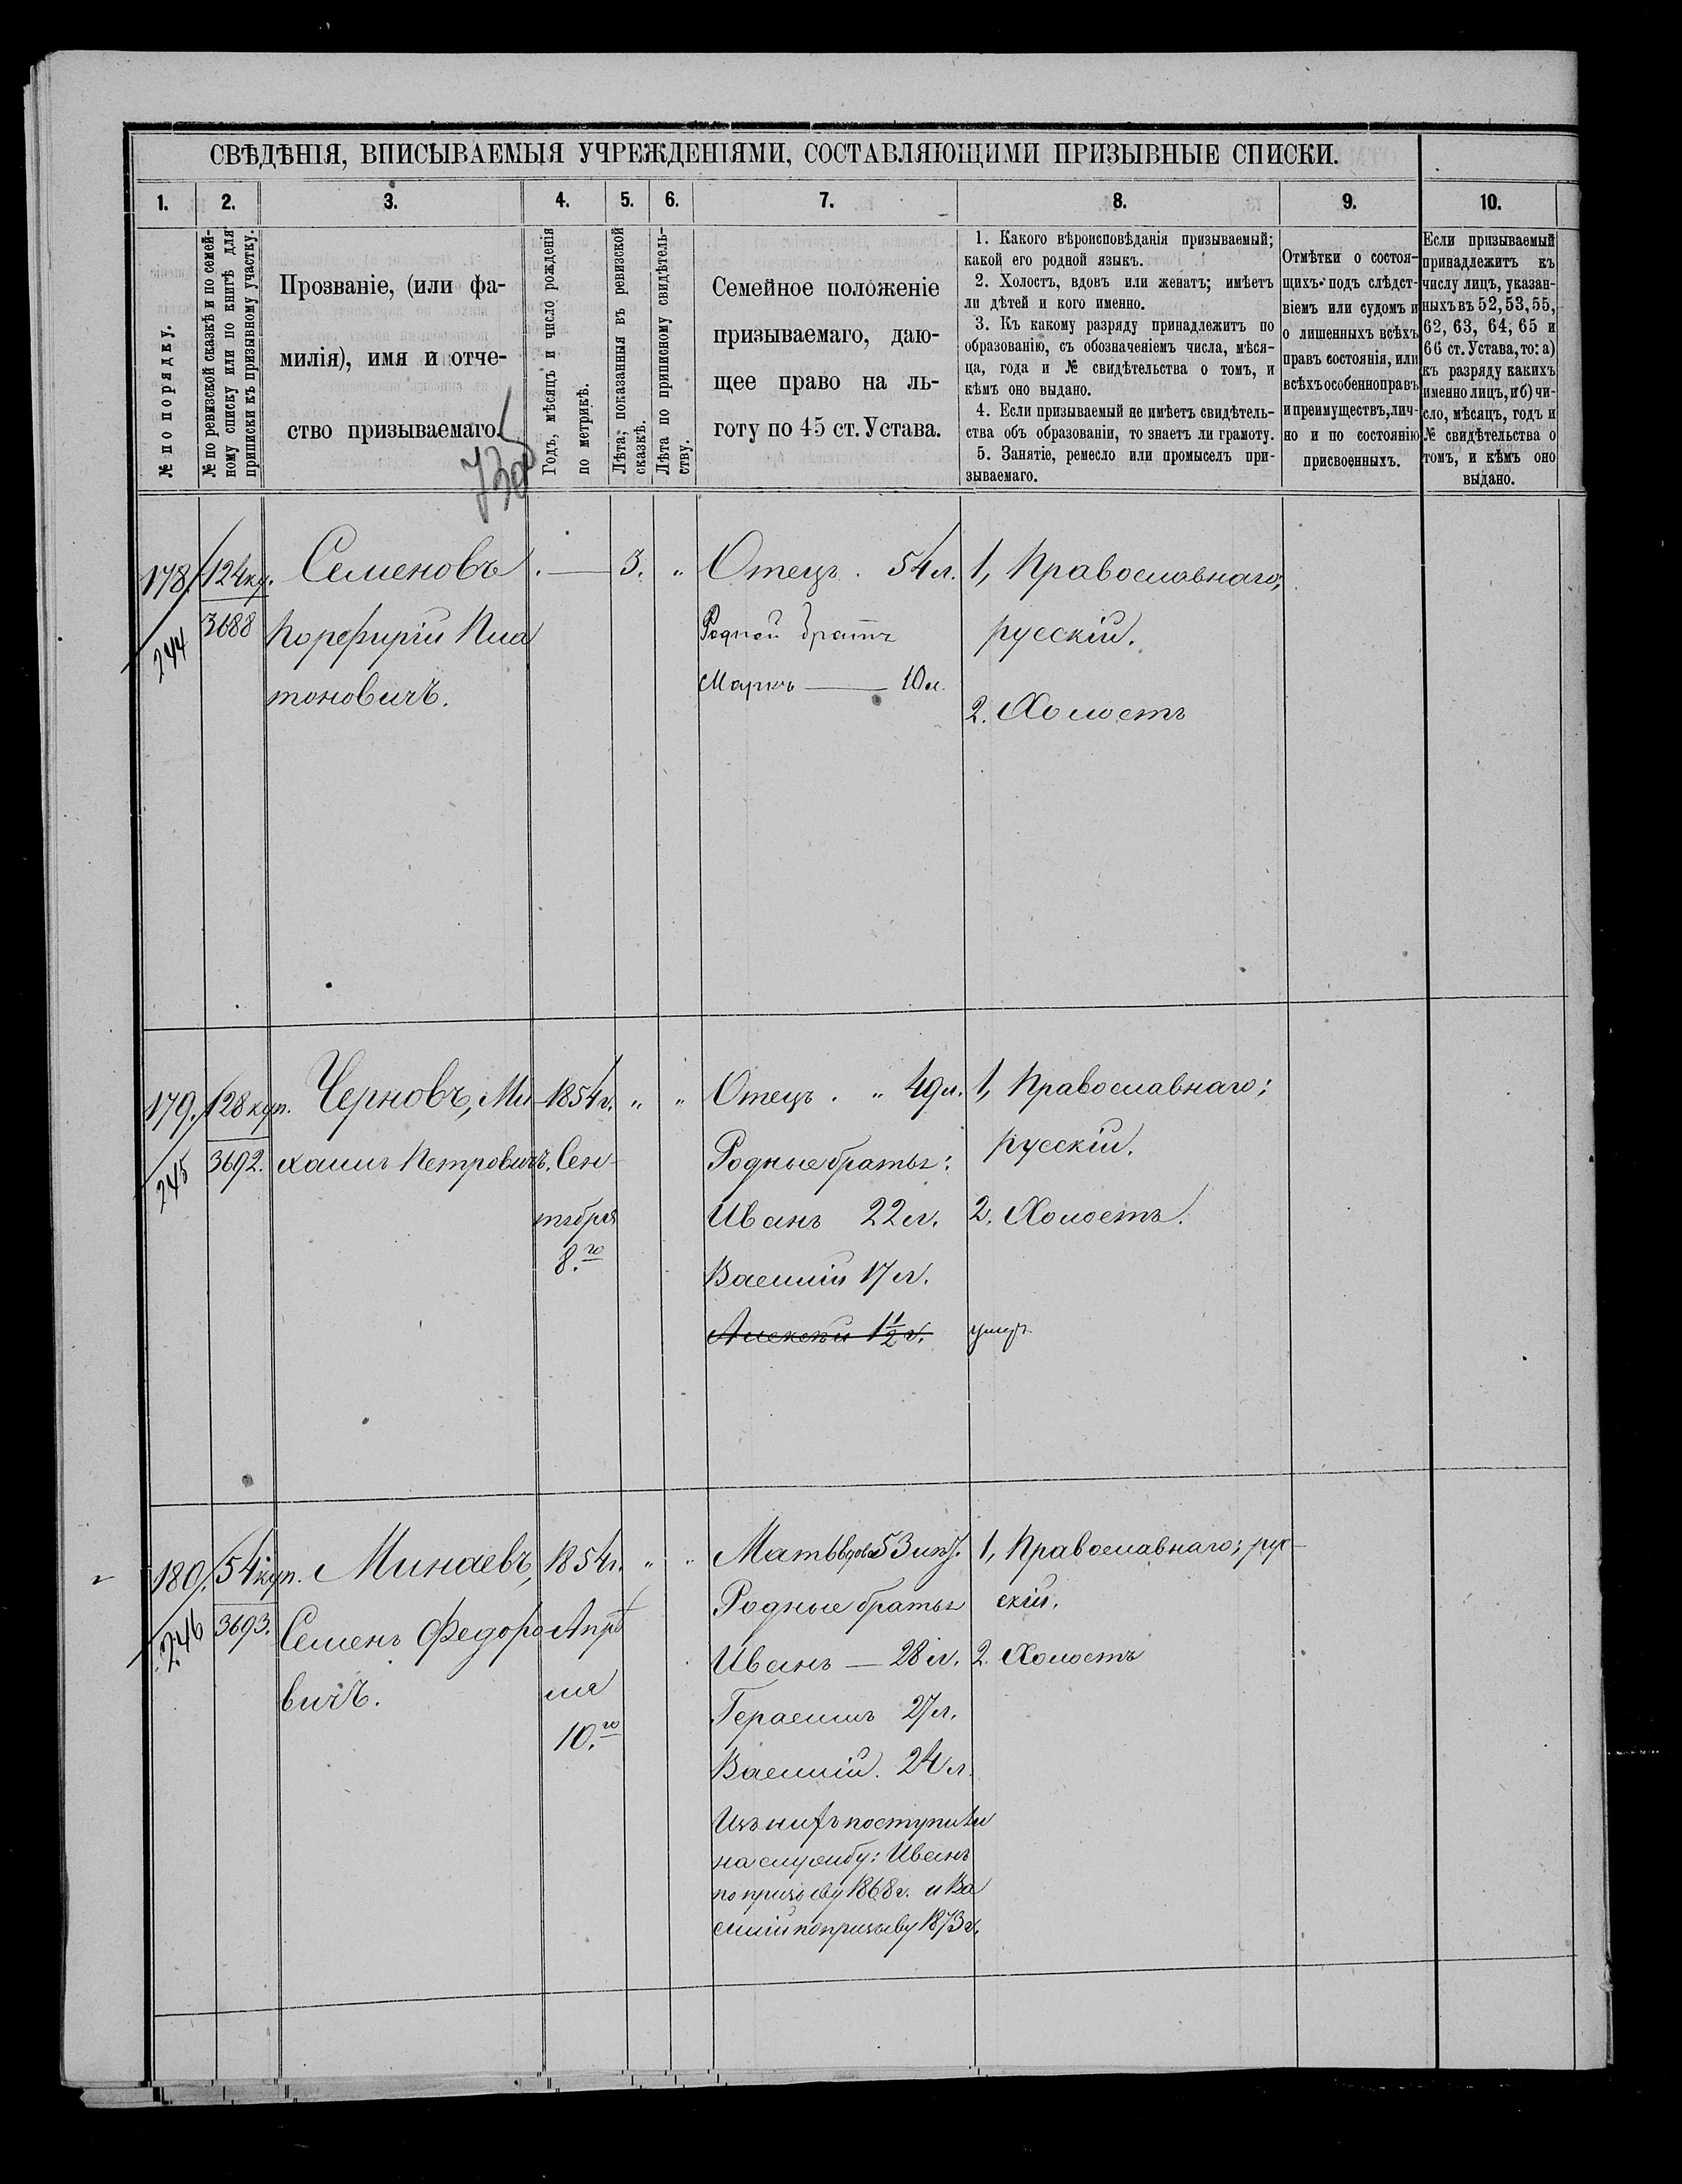 СВѢДѢНІЯ, ВПИСЫВАЕМЫЯ УЧРЕЖДЕНІЯМИ, СОСТАВЛЯЮЩИМИ ПРИЗЫВНЫЕ СПИСКИ.
1.
2.
3.
4.
5.
6.
7.
8.
9.
10.
№ по порядку.
№ по ревизской сказкѣ и по семей-
ному списку или по книгѣ для
приписки къ призывному участку.
Прозваніе, (или фа-
милія), имя и отче-
ство призываемаго.
Годъ, мѣсяцъ и число рожденія
по метрикѣ.
Лѣта, показанныя въ ревизской
сказкѣ.
Лѣта по приписному свидѣтель-
ству.
Семейное положеніе
призываемаго, даю-
щее право на ль-
готу по 45 ст. Устава.
1. Какого вѣроисповѣданія призываемый;
какой его родной языкъ.
2. Холостъ, вдовъ или женатъ; имѣетъ
ли дѣтей и кого именно.
3. Къ какому разряду принадлежитъ по
образованію, съ обозначеніемъ числа, мѣся-
ца, года и № свидѣтельства о томъ, и
кѣмъ оно выдано.
4. Если призываемый не имѣетъ свидѣтель-
ства объ образованіи, то знаетъ ли грамоту.
5. Занятіе, ремесло или промыселъ при-
зываемаго.
Отмѣтки о состоя-
щихъ подъ слѣдст-
віемъ или судомъ и
о лишенныхъ всѣхъ
правъ состоянія, или
всѣхъ особенно правъ
и преимуществъ, лич-
но и по состоянію
присвоенныхъ.
Если призываемый
принадлежитъ къ
числу лицъ, указан-
ныхъ въ 52, 53, 55,
62, 63, 64, 65 и
66 ст. Устава, то: а)
къ разряду какихъ
именно лицъ, и б) чи-
сло, мѣсяцъ, годъ и
№ свидѣтельства о
томъ, и кѣмъ оно
выдано.
178.
244
124 ку.
3688
Семеновъ
Порефирій Пла
тоновичъ.
3. "
Отецъ. 54 л.
Родной братъ
Маркъ — 10 л.
1, Православнаго;
русскій.
2. Холостъ
179.
245
128 куп.
3692.
Черновъ, Ми
хаилъ Петровичъ.
1854 г.
Сен-
тября
8.го
" "
Отецъ. " 49 л.
Родные братья:
Иванъ 22 л.
Василій 17 л.
Алексѣй 1 1/2 г.
1, Православнаго;
русскій.
2. Холостъ.
умеръ
180.
246
54 куп.
3693.
Минаевъ,
Семенъ Федоро
вичъ.
1854 г.
Апрѣ
ля
10.го
" "
Мать вдова 53 л.
Родные братья
Иванъ — 28 л.
Герасимъ 27 л.
Василій. 24 л.
Изъ нихъ поступили
на службу: Иванъ
по призыву 1868 г. и Ва
силій по призыву 1873 г.
1, Православнаго; рус-
скій.
2. Холостъ